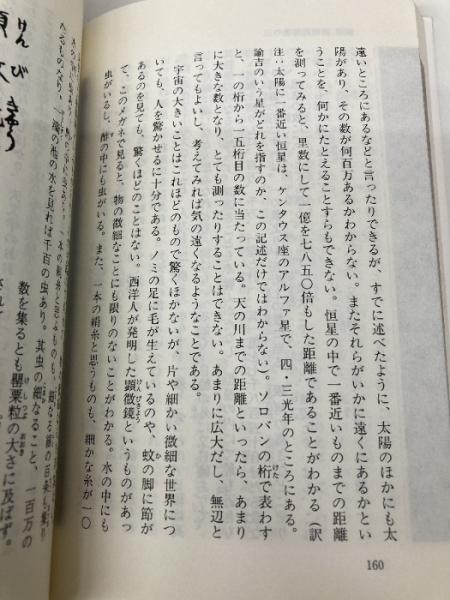 遠いところにあるなどと言ったりできるが、すでに述べたように、太陽のほかにも太
陽があり、その数が何百万あるかわからない。またそれらがいかに遠くにあるかとい
うことを、何かにたとえることすらもできない。恒星の中で一番近いものまでの距離
を測ってみると、里数にして一億を七八五〇倍もした距離であることがわかる（訳
注：太陽に一番近い恒星は、ケンタウス座のアルファ星で、四・三光年のところにある。
諭吉のいう星がどれを指すのか、この記述だけではわからない）。ソロバンの桁で表わす
と、一の桁から一五桁目の数に当たっている。天の川までの距離といったら、あまり
に大きな数となり、とても測ったりすることはできない。あまりに広大だし、無辺と
言ってもよいし、考えてみれば気の遠くなるようなことである。
宇宙の大きいことはこれほどのもので驚くほかないが、片や細かい微細な世界につ
いても、人を驚かせるに十分である。ノミの足に毛が生えているのや、蚊の脚に節が
あるのを見ても、驚くほどのことはない。西洋人が発明した顕微鏡というものがあっ
て、このメガネで見ると、物の微細なことにも限りのないことがわかる。水の中にも
虫がいるし、酢の中にも虫がいる。また、一本の絹糸と思うものも、細かな糸が一〇
160
けんびきやう
一滴の水を見れば千百の虫あり。其虫の細なること、一百万の
数を集るとも罌粟粒の大さに及ばず。